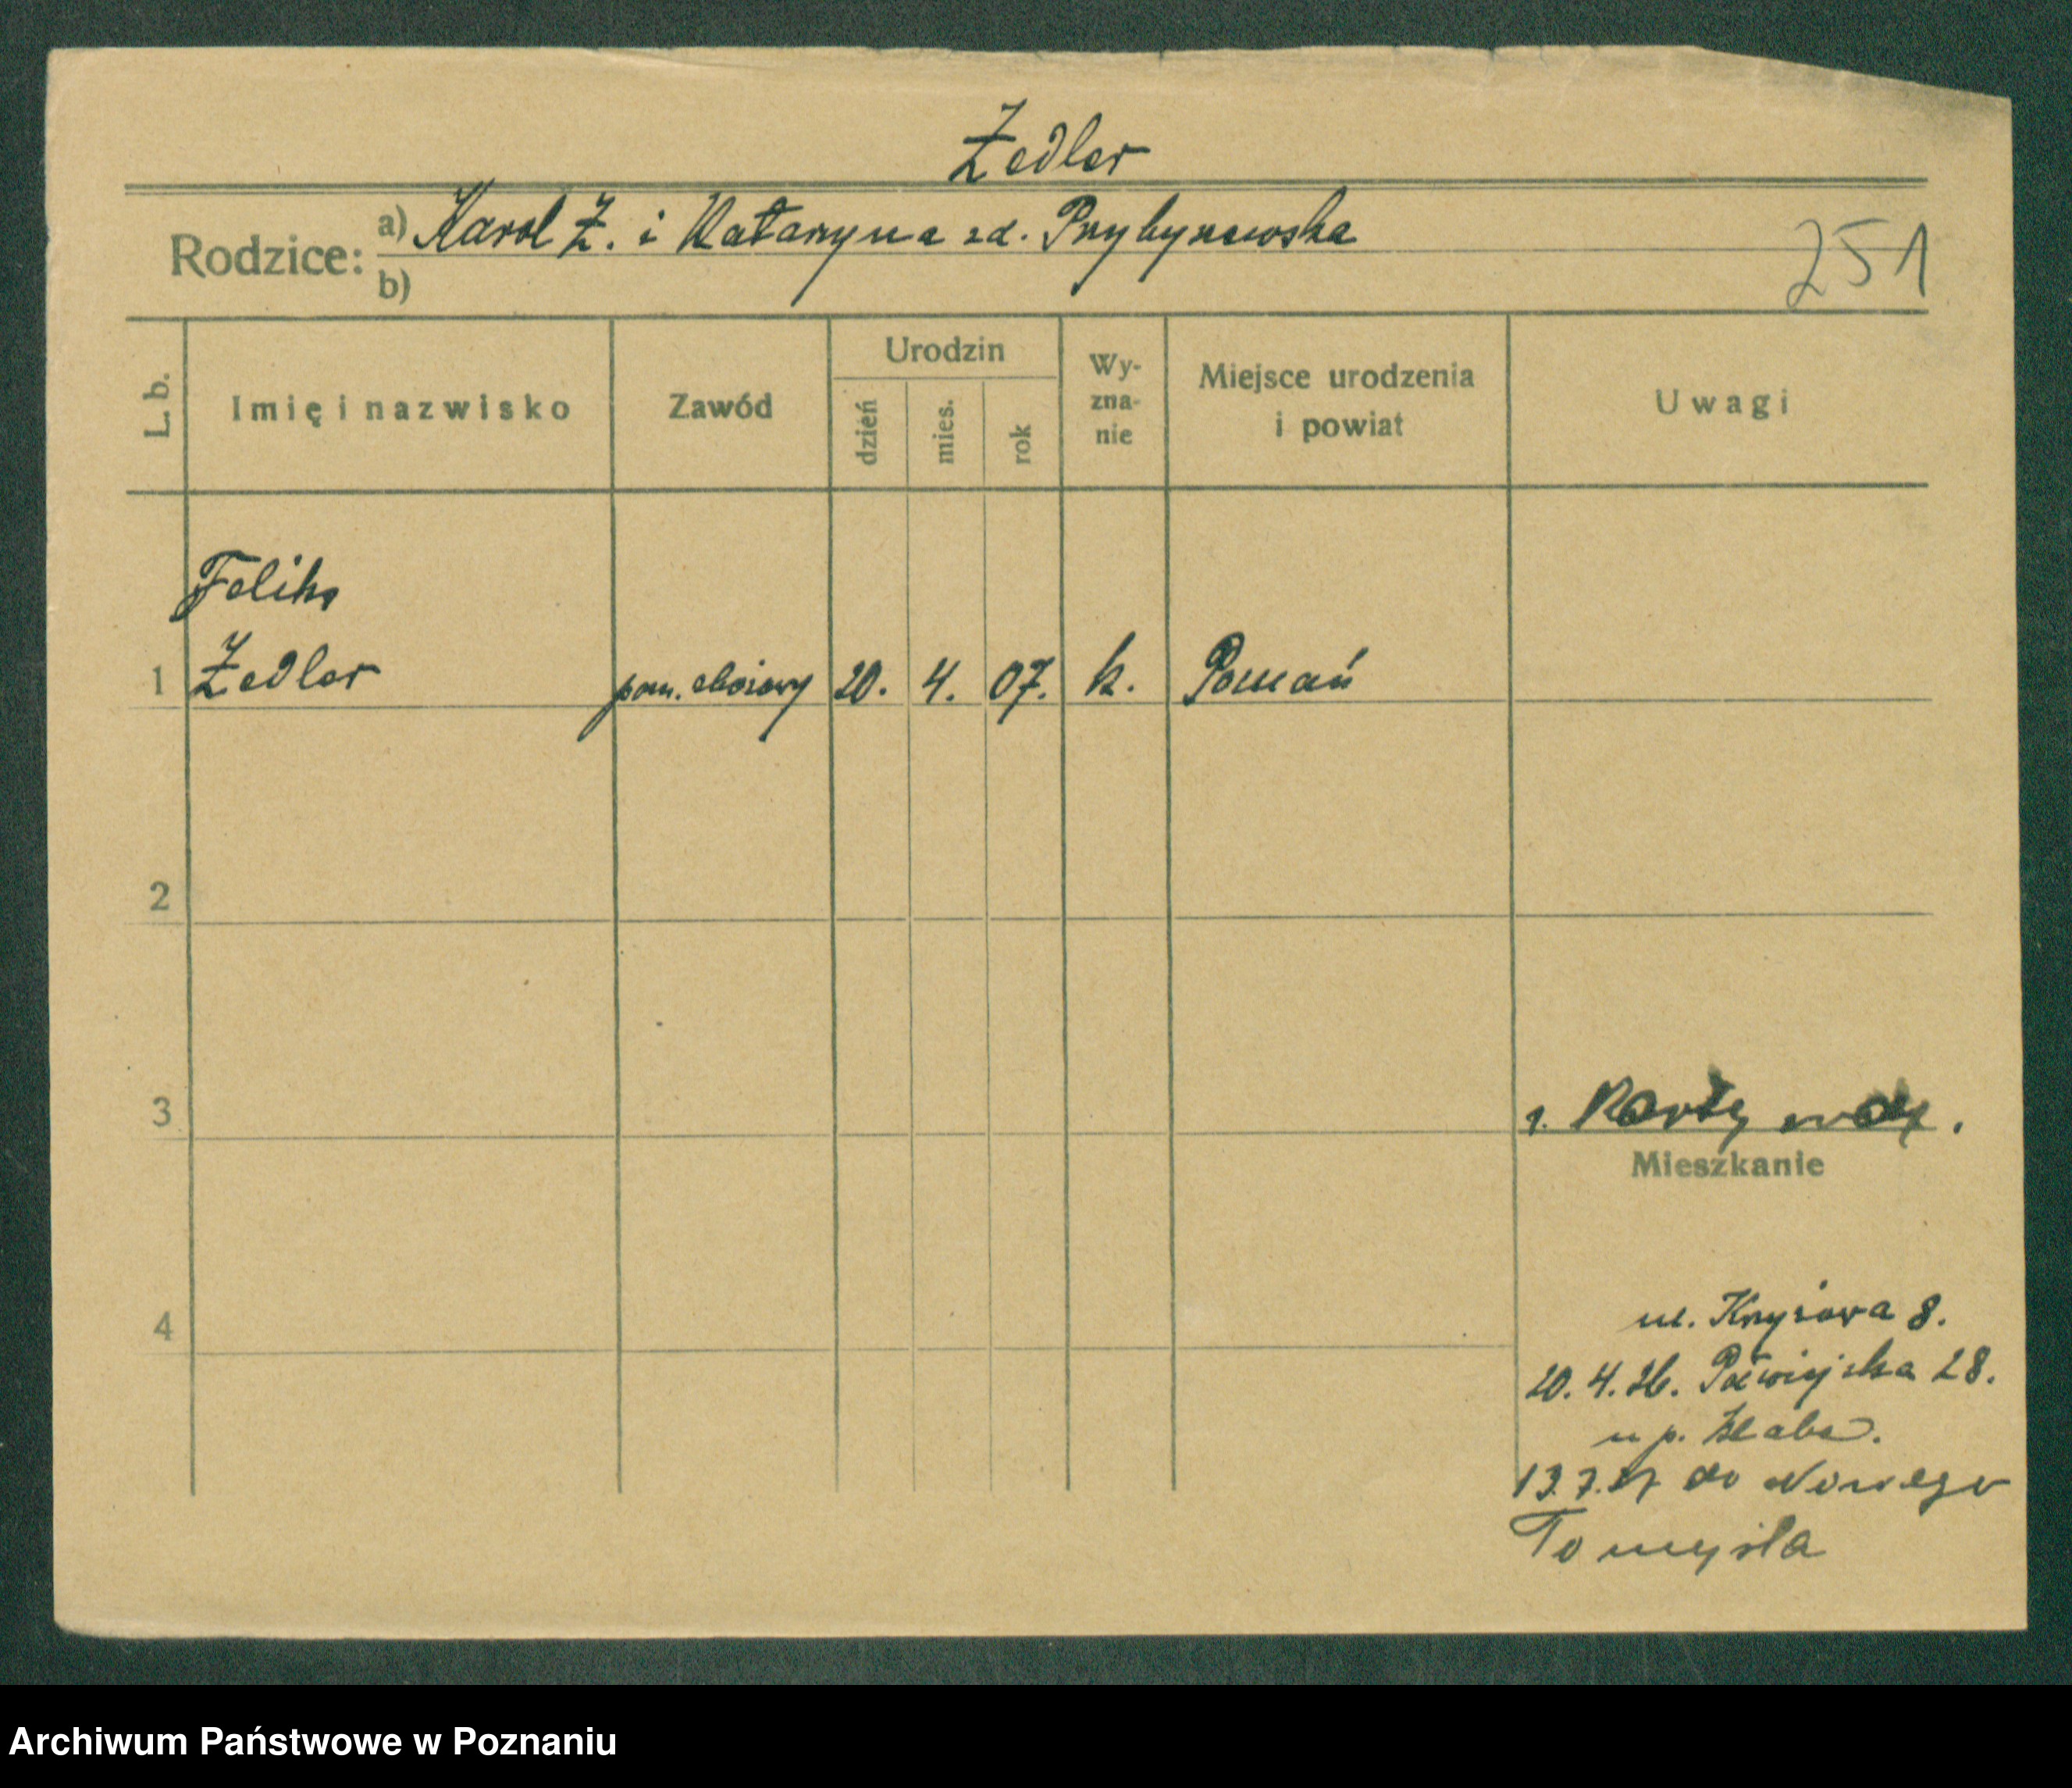 Zedler
Rodzice: a) Karol Z. i Katarzyna zd. Przybyszewska
251
b)
L. b.
Imię i nazwisko
Zawód
Urodzin
dzień
mies.
rok
Wy-
zna-
nie
Miejsce urodzenia
i powiat
Uwagi
Feliks
1 Zedler pom. zbożowy 20. 4. 07. k. Poznań
2
3
1. Karty wyd.
Mieszkanie
4
ul. Krzyżowa 8.
20. 4. 26. Półwiejska 28.
u p.
13. 7. 27 do Nowego
Tomyśla
Archiwum Państwowe w Poznaniu